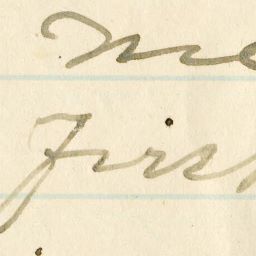 Me
First